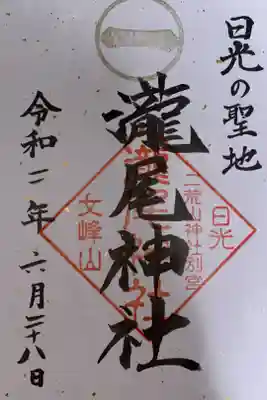 日光の聖地
瀧尾神社
令和二年六月二十八日
日光
二荒山神社別宮
瀧尾神社
女峰山